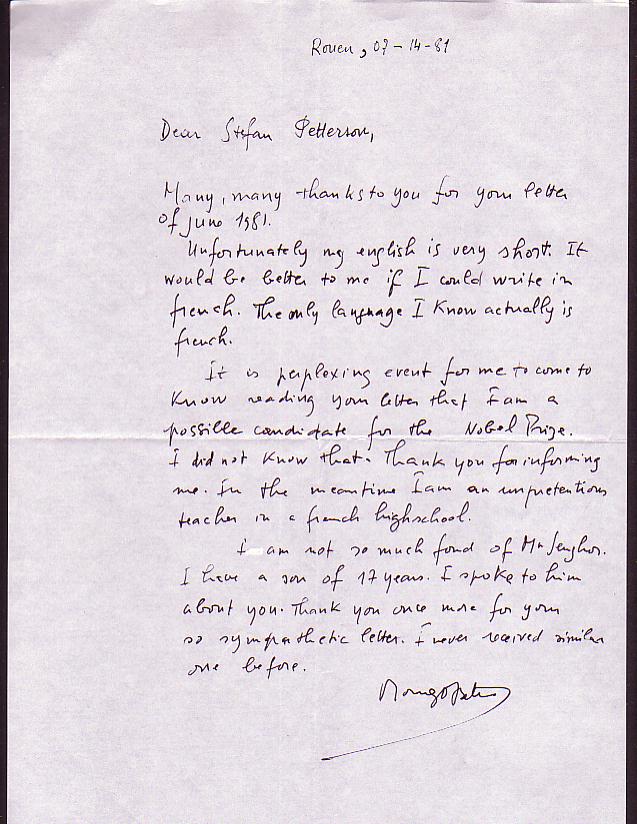 Rouen, 07-14-81
Dear Stefan Petterson,
Many, many thanks to you for your letter
of june 1981.
Unfortunately my english is very short. It
would be better to me if I could write in
french. The only language I know actually is
french.
It is perplexing event for me to come to
know reading your letter that I am a
possible candidate for the Nobel Prize.
I did not know that. Thank you for informing
me. In the meantime I am an unpretentious
teacher in a french highschool.
I am not so much fond of Mr Senghor.
I have a son of 17 years. I spoke to him
about you. Thank you once more for your
so sympathetic letter. I never received similar
one before.